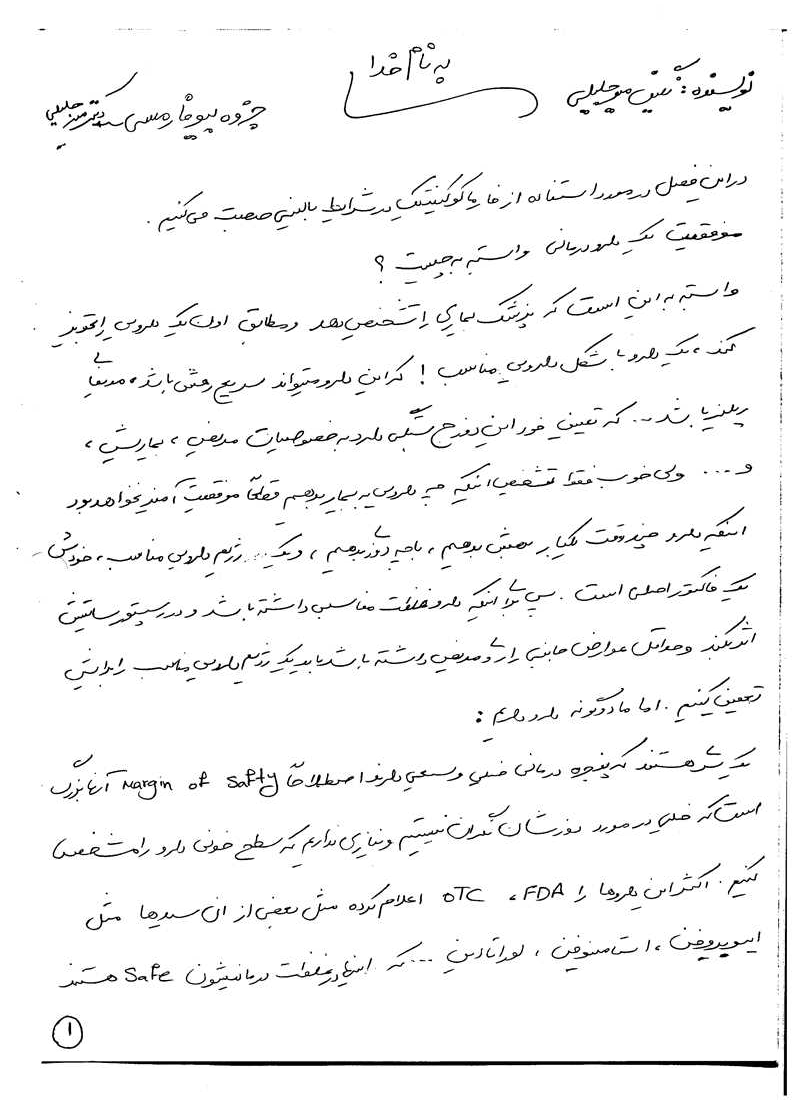 به نام خدا
نویسنده: میرجلیلی
جزوه بیوفارمسی دکتر میرجلیلی
در این فصل در مورد استفاده از فارماکوکینتیک در شرایط بالینی صحبت می‌کنیم.
موفقیت یک دارو درمانی وابسته به چیست ؟
وابسته به این است که پزشک بیماری را تشخیص بدهد و مطابق اون یک داروی را تجویز
کند، یک دارو با شکل دارویی مناسب ! که این دارو میتواند سریع رهش باشد،
باشد ... که تعیین خود این نوع بستگی دارد به خصوصیات مریض، بیماریش،
و .... ولی خوب فقط تشخیص اینکه چه دارویی به بیمار بدهیم قطعاً موفقیت آمیز نخواهد بود
اینکه دارو چند وقت یکبار بهش بدهیم، با چه دوز بدهیم، و یک رژیم دارویی مناسب، خودش
یک فاکتور اصلی است. پس برای اینکه دارو غلظت مناسبی داشته باشد و در رسپتور سایتش
اثر بکند و حداقل عوارض جانبی را در مریض داشته باشد باید یک رژیم دارویی مناسب را برایش
تعیین کنیم. اما ما دو گونه دارو داریم:
یک سری هستند که پنجره درمانی خیلی وسیعی دارند اصطلاحاً Margin of Safty آنها بزرگ
است که خیلی در مورد دوزشان نگران نیستیم و نیازی نداریم که سطح خونی دارو را مشخص
کنیم. اکثر این داروها را FDA، OTC اعلام کرده مثل بعضی از ان سیدها مثل
ایبوپروفن، استامینوفن، لوراتادین .... که اینها در غلظت درمانیشون Safe هستند
۱